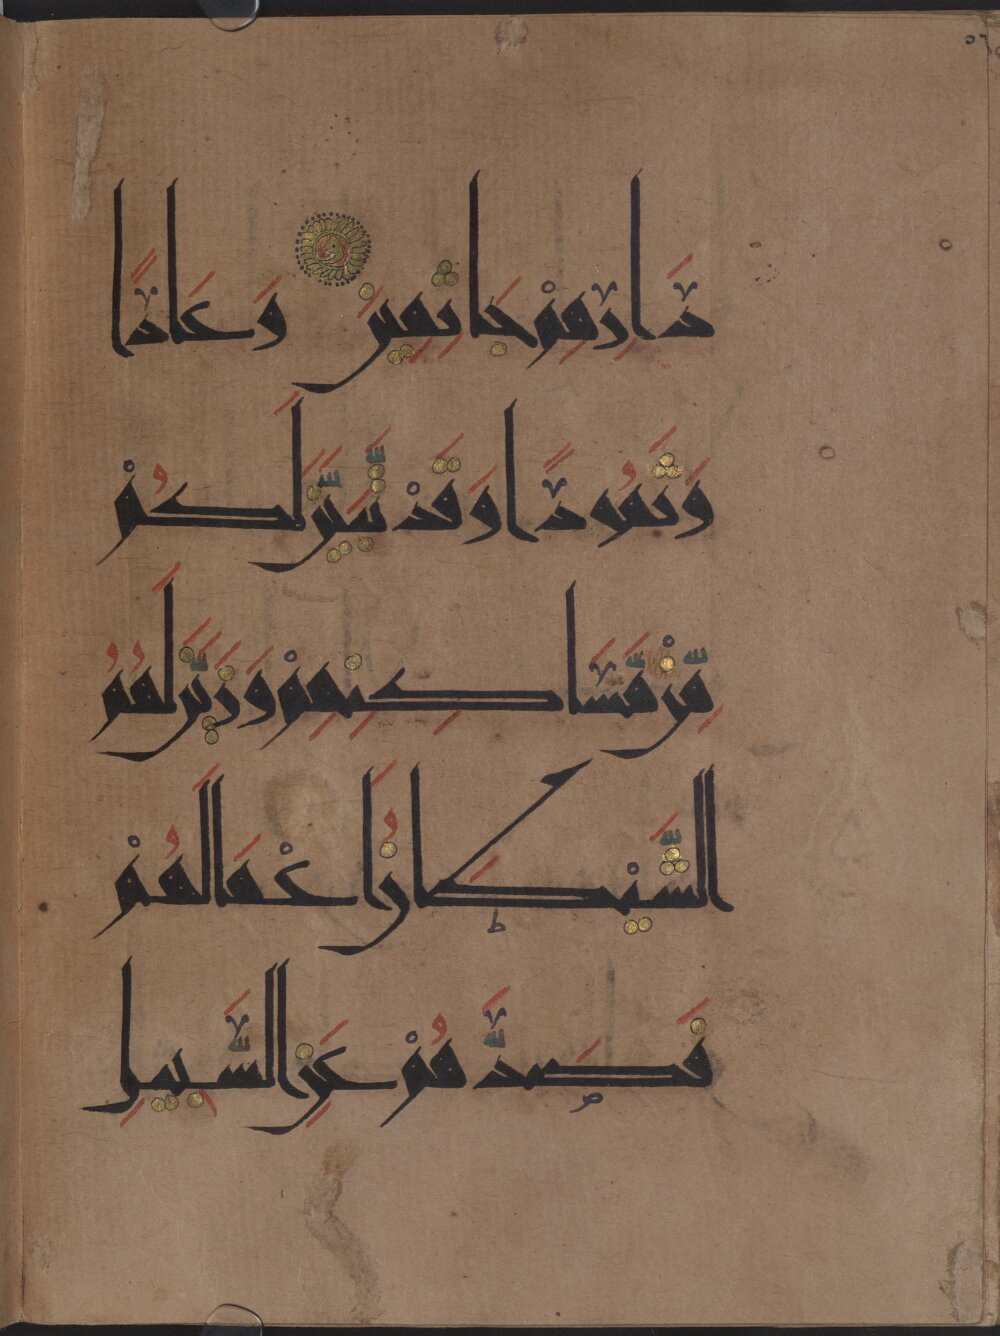 دَارِهِمْ جَاثِمِينَ وَعَادًا
وَثَمُودًا وَقَدْ تَبَيَّنَ لَكُمْ
مِّنْ مَّسَاكِنِهِمْ وَزَيَّنَ لَهُمُ
الشَّيْطَانُ اَعْمَالَهُمْ
فَصَدَّهُمْ عَنِ السَّبِيلِ